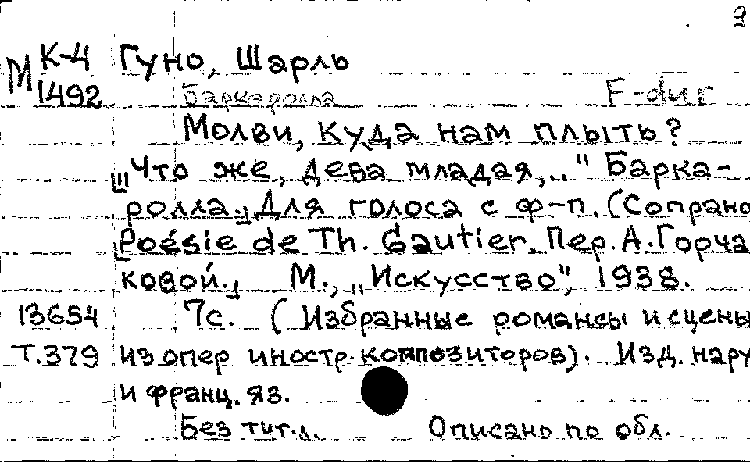 М К-4 Гуно, Шарль
1492 Баркаролла F-dur
Молви, куда нам плыть?
„Что же, дева младая,.." Барка-
ролла. Для голоса с ф-п. (Сопрано
Poésie de Th. Gautier. Пер. А. Горча
ковой. М., „Искусство", 1938.
13654 7с. (Избранные романсы и сцены
Т.379 из опер иностр. композиторов). Изд. на ру
и франц. яз.
Без тит. л. Описано по обл.